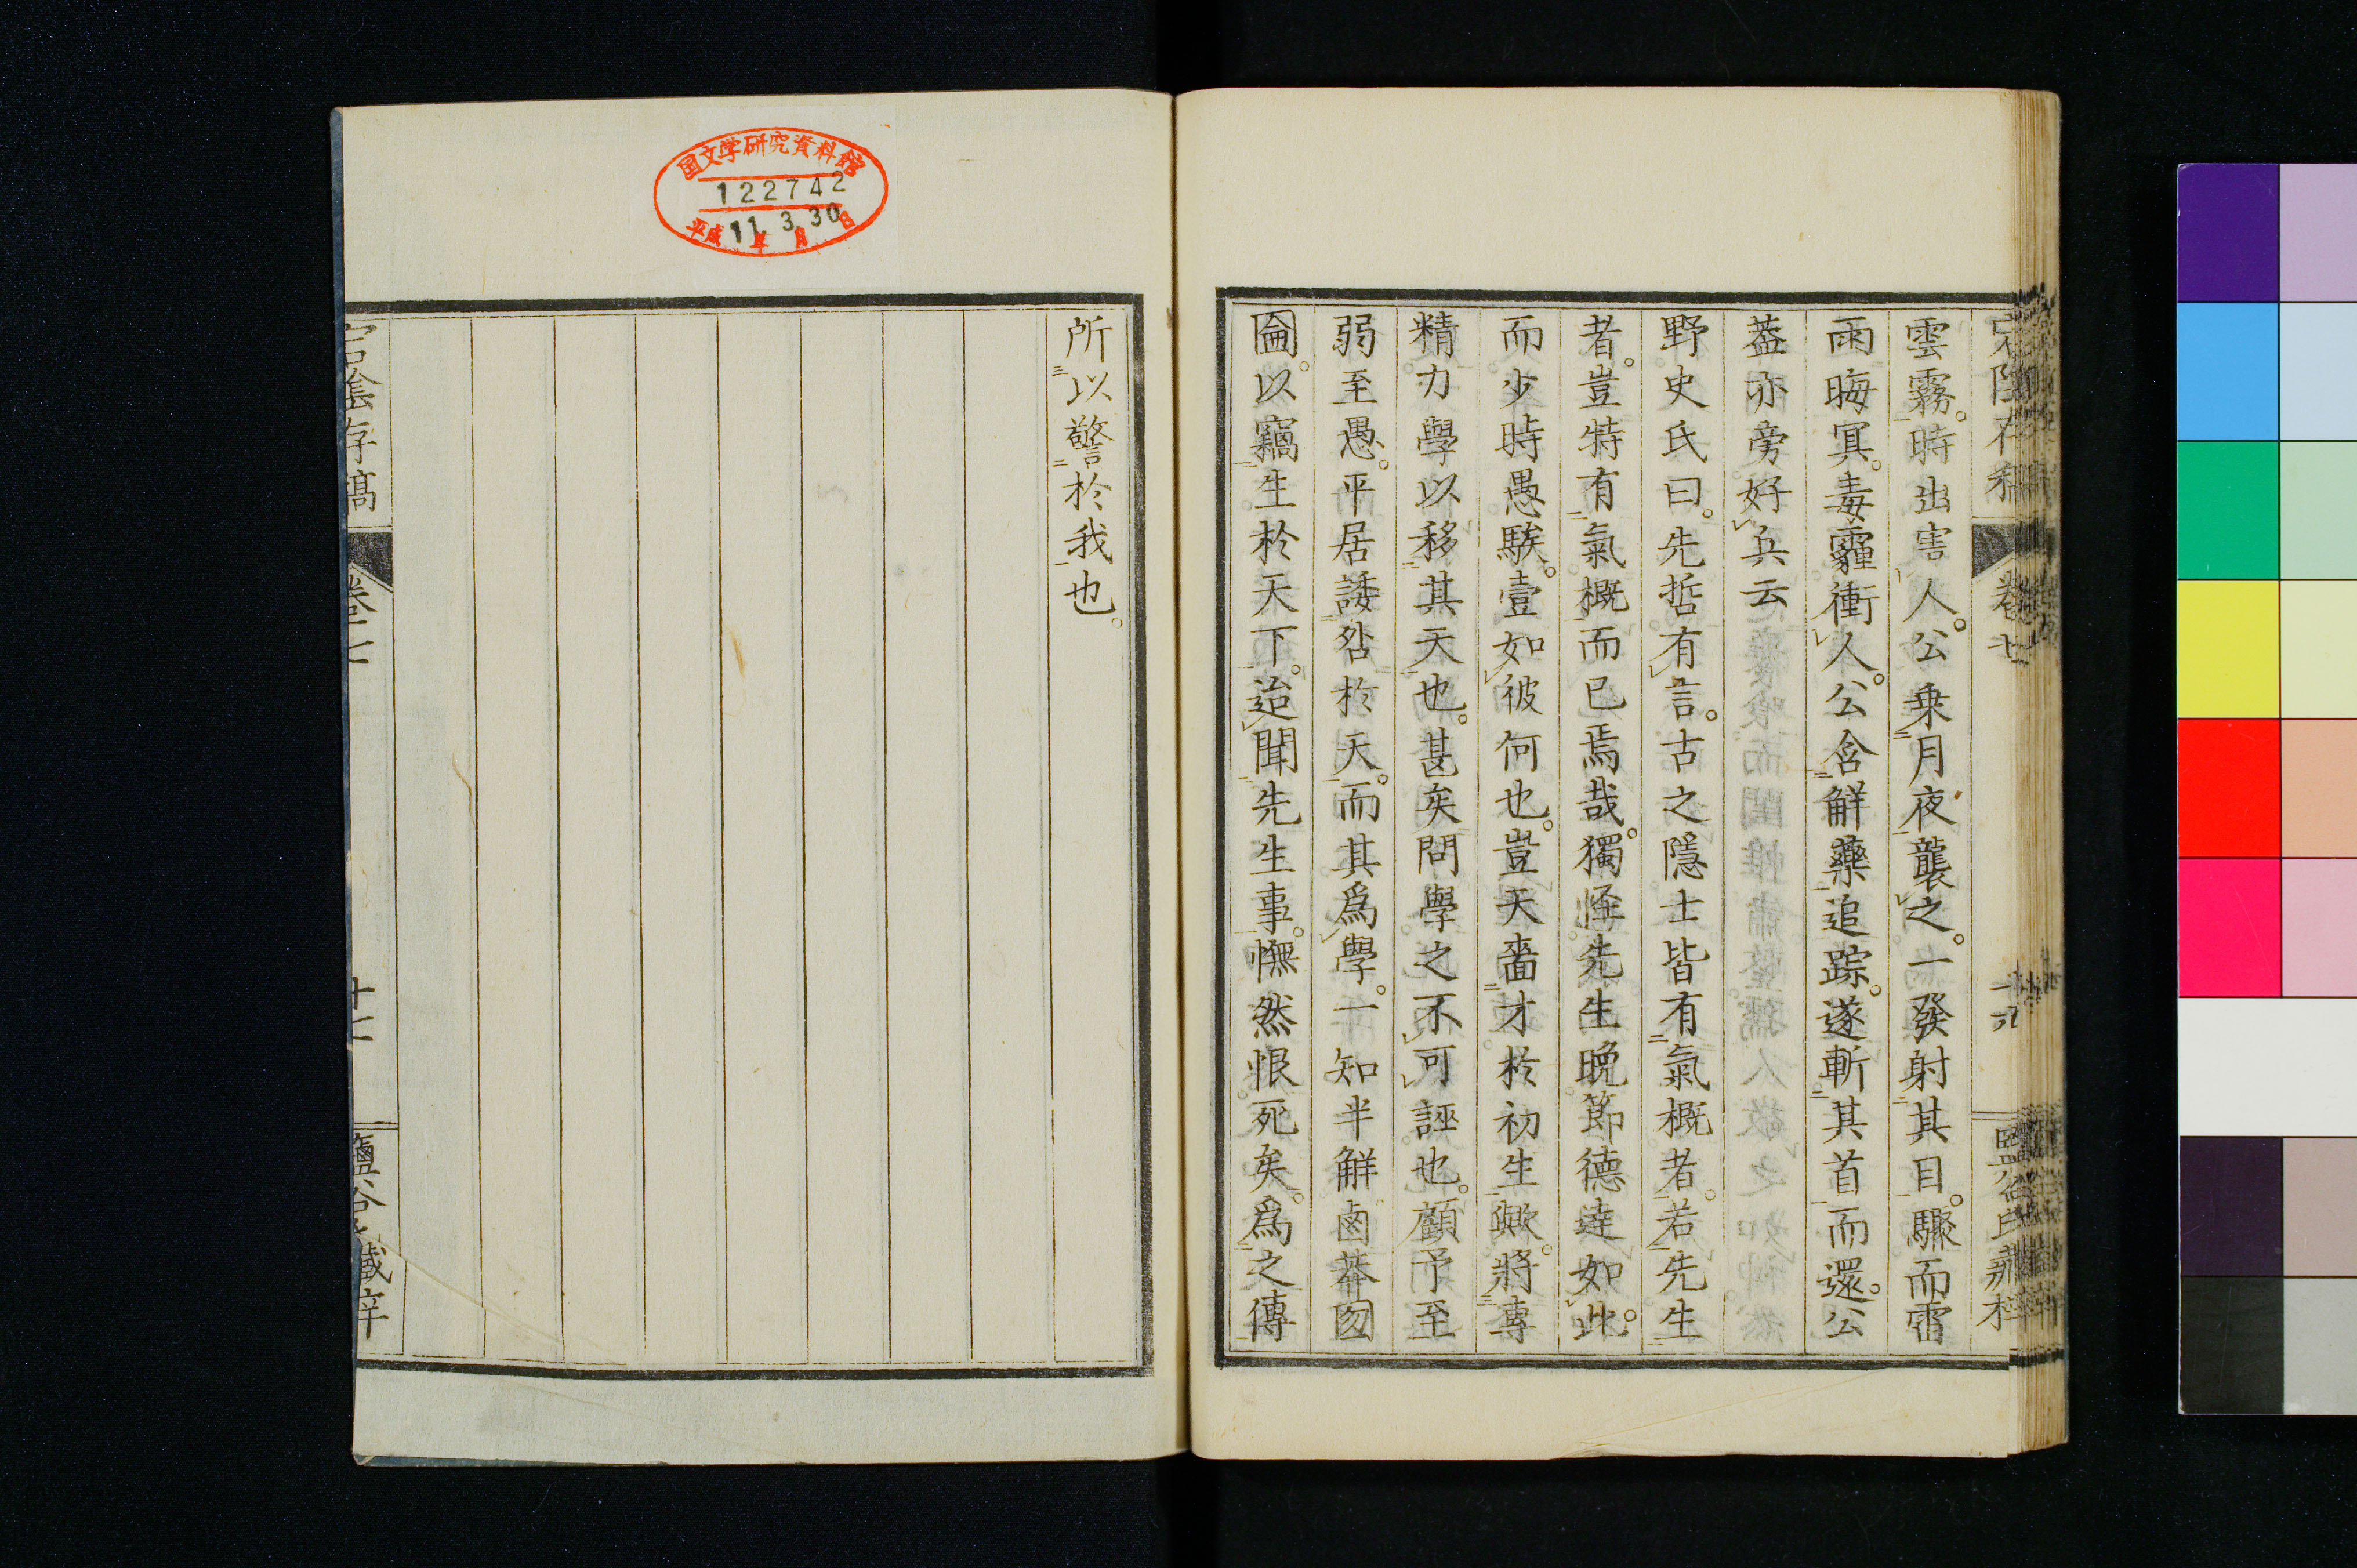 雲霧。時出害人。公乗月夜襲之。一發射其目。驟而雷
雨晦冥。毒霾衝人。公公含解藥追踪。遂斬其首而還。公
蓋亦旁好兵云
野史氏曰。先哲有言。古之隱士皆有氣概者。若先生
者。豈特有氣概而已焉哉。獨怪先生晩節德達如此。
而少時愚騃。壹如彼何也。豈天嗇才於初生歟。將專
精力學以移其天也。甚矣問學之不可誣也。顧予至
弱至愚。平居諉咎於天。而其爲學。一知半解鹵莽囫
圇。以竊生於天下。迨聞先生事。憮然恨死矣。爲之傳
卷十
所以警於我也。
宕陰存稿
十七
国文学研究資料館
122742
平成11年3月30日